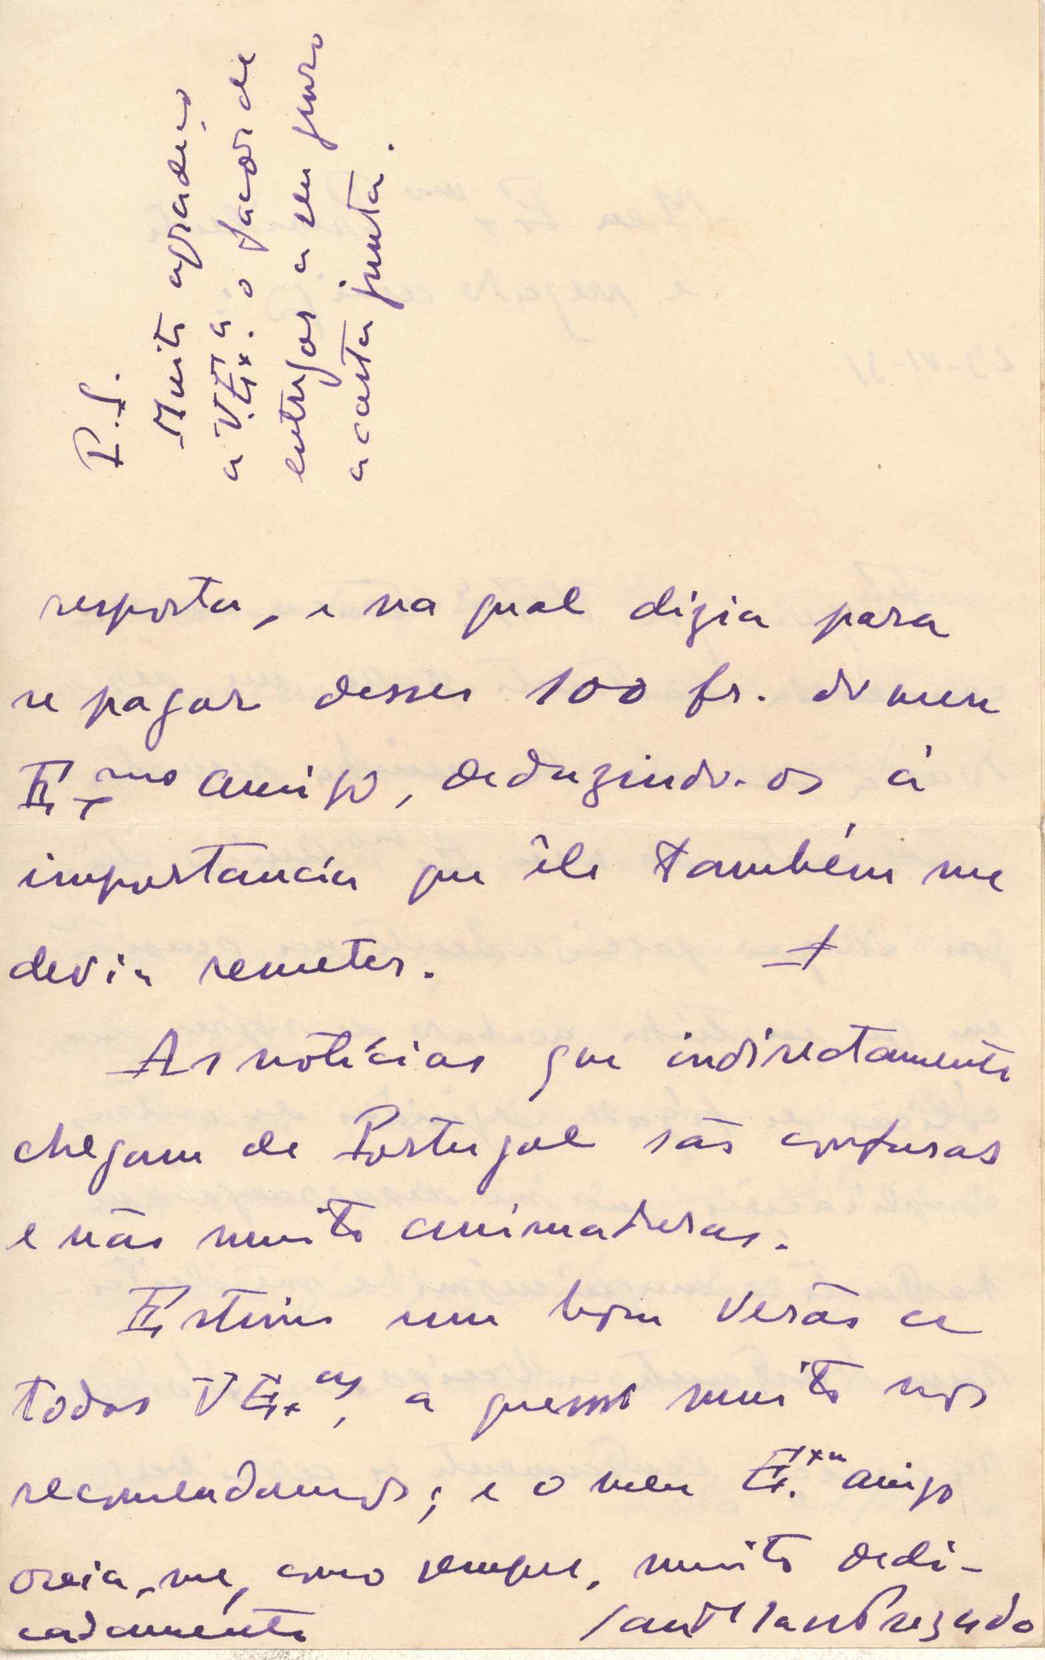 resposta, e na qual dizia para
se pagar desses 100 fr. do meu
Ex.mo amigo, deduzindo-os á
importancia que êle também me
devia remeter.
As notícias que indirectamente
chegam de Portugal são confusas
e não muito animadoras.
Estimo um bom verão a
todos V Ex.as, a quem muito nos
recomendamos; e o meu Ex.mo amigo
creia-me, como sempre, muito dedi-
cadamente
P.S.
Muito agradeço
a V. Ex.a o favor de
entregar a seu genro
a carta junta.